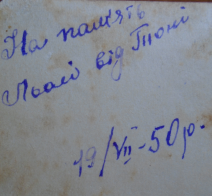 На пам'ять
Льолі від Тоні
19/VII-50р.